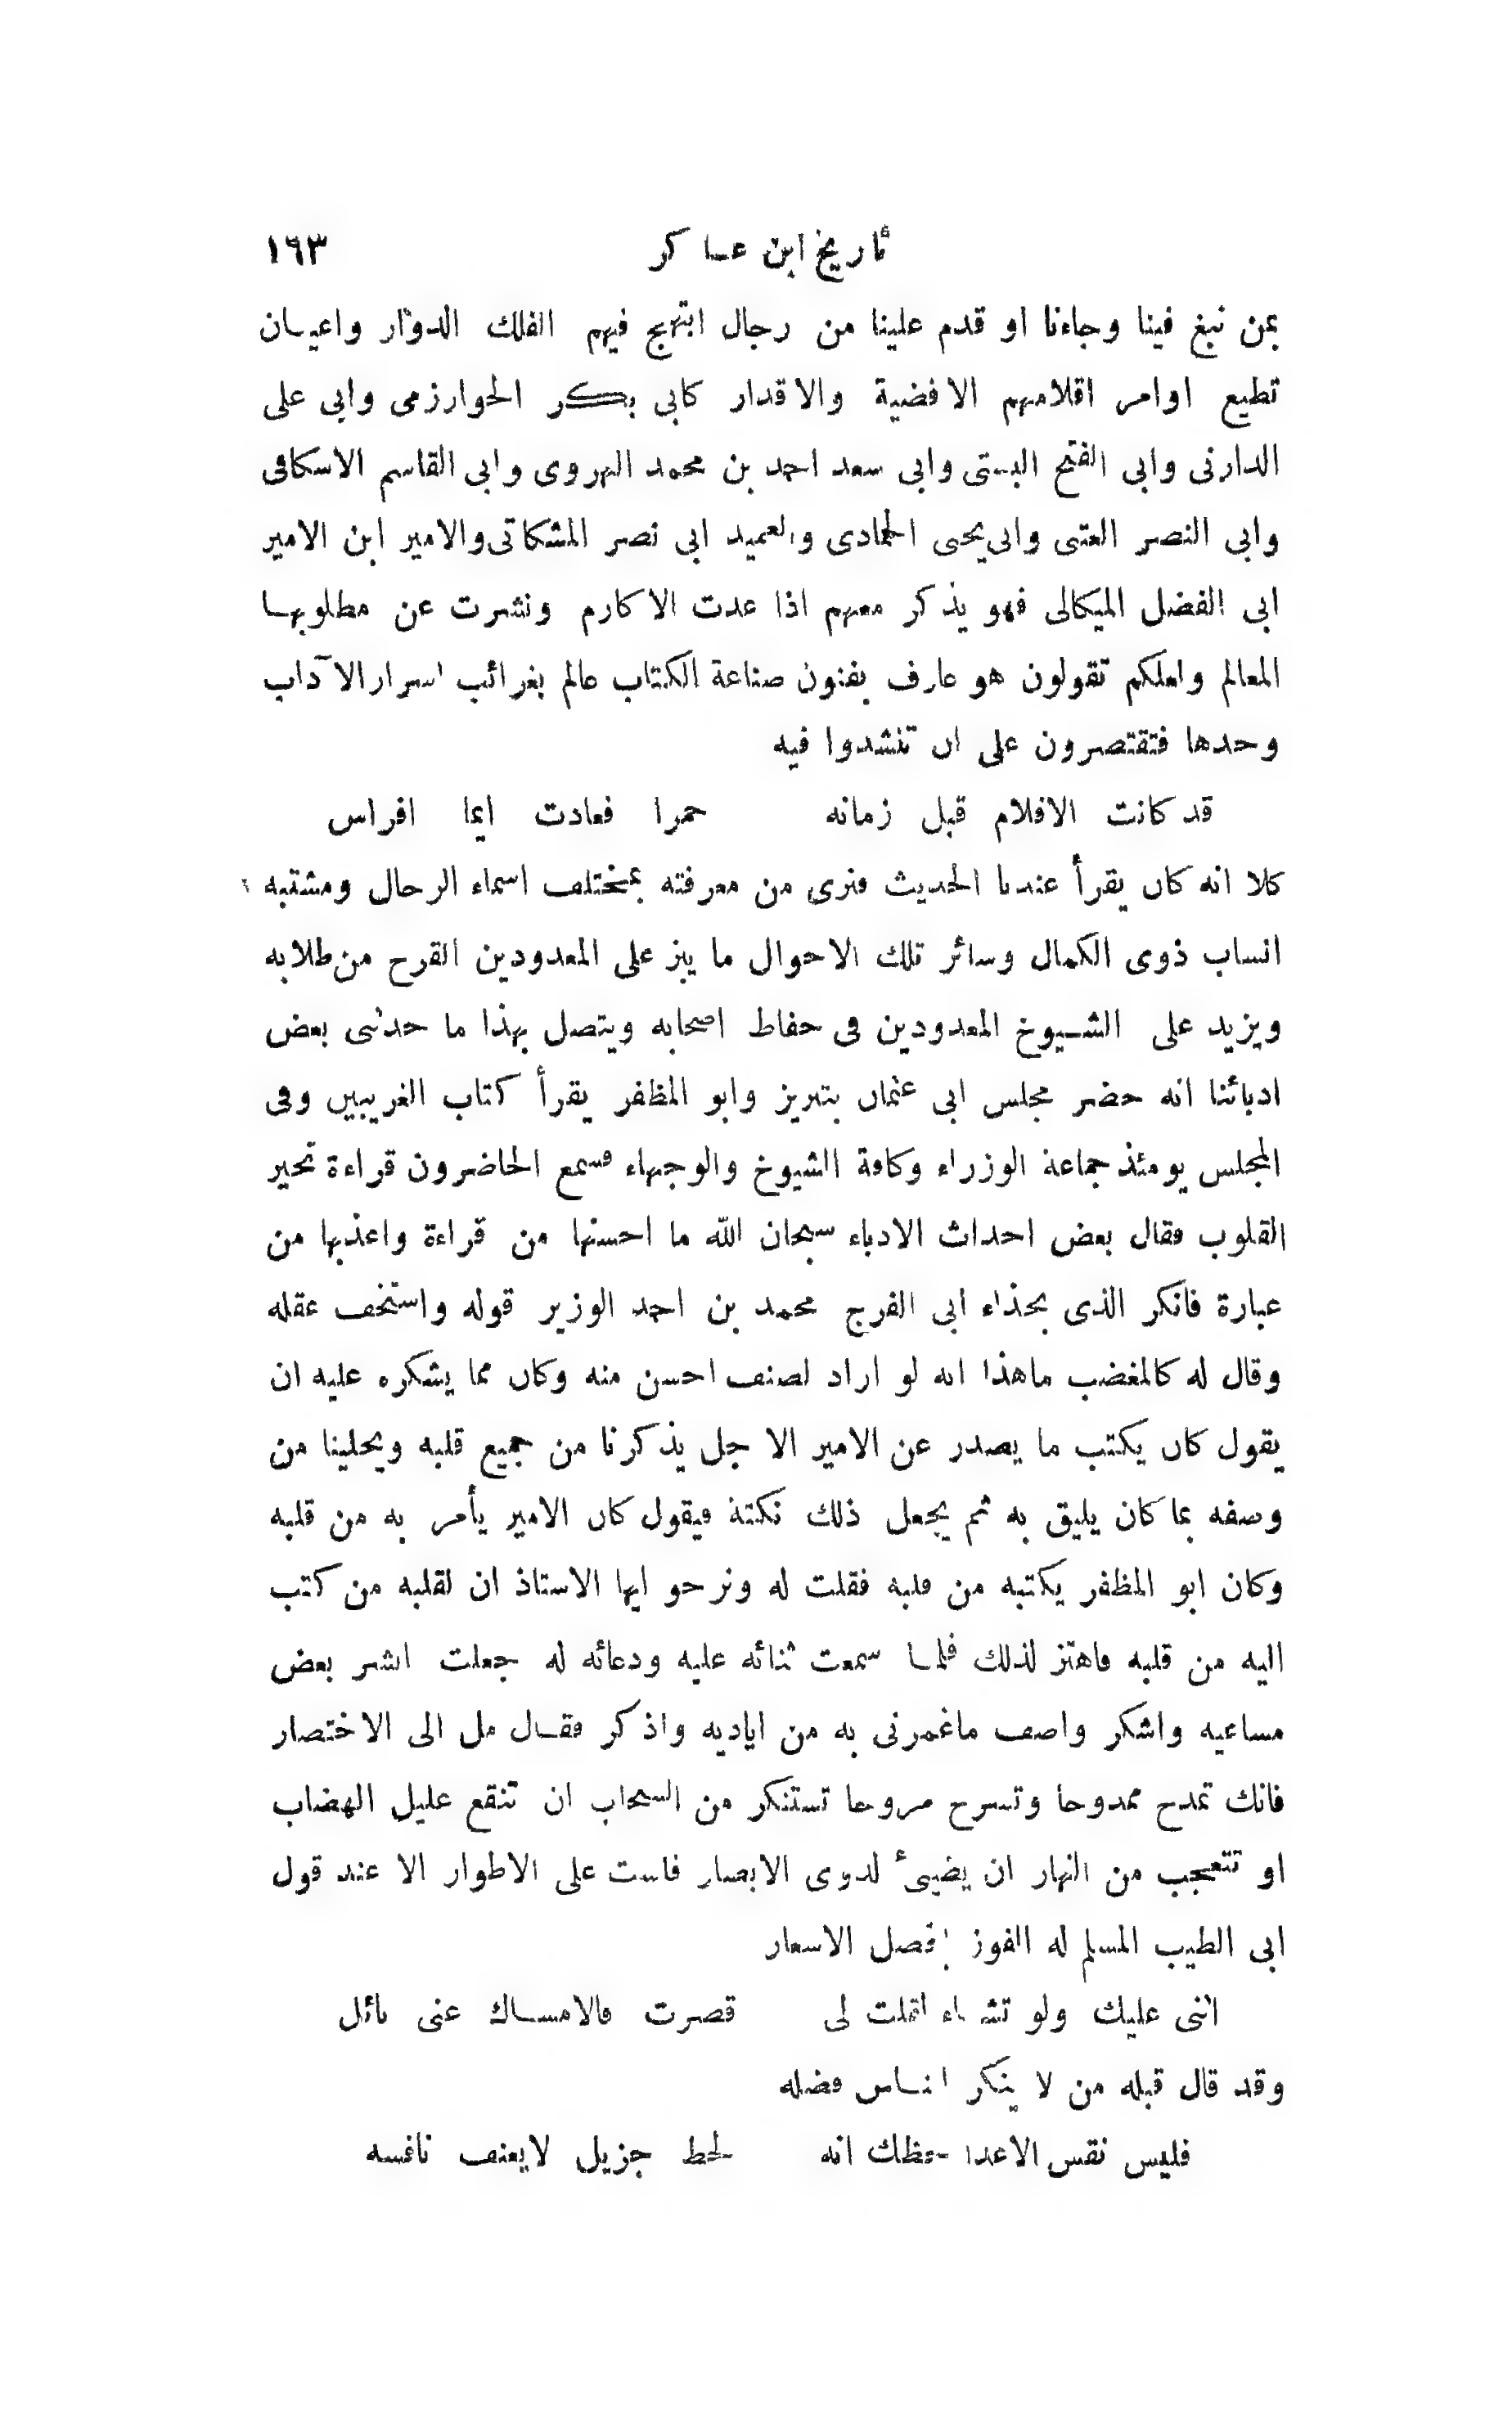 تاريخ ابن عساكر ١٦٣
بمن نبغ فينا وجاءنا او قدم علينا من رجال ابتهج فيهم الفلك الدوار واعيان
تطيع اوامر اقلامهم الافضية والاقدار كابى بكر الخوارزمى وابى على
الدارنى وابى الفتح البستى وابى سعد احمد بن محمد الهروى وابى القاسم الاسكافى
وابى النصر العتبى وابى يحيى الحمادى والعميد ابى نصر المشكاتى والامير ابن الامير
ابى الفضل الميكالى فهو يذكر معهم اذا عدت الاكارم ونشرت عن مطلوبها
المعالم ولعلكم تقولون هو عارف بفنون صناعة الكتاب عالم بغرائب اسرار الآداب
وحدها فتقتصرون على ان تنشدوا فيه
قد كانت الاقلام قبل زمانه حمرا فعادت ايما افراس
كلا انه كان يقرأ عندنا الحديث فنرى من معرفته بمختلف اسماء الرجال ومشتبه
انساب ذوى الكمال وسائر تلك الاحوال ما يبز على المعدودين القرح من طلابه
ويزيد على الشيوخ المعدودين فى حفاظ اصحابه ويتصل بهذا ما حدثنى بعض
ادبائنا انه حضر مجلس ابى عثمان بتبريز وابو المظفر يقرأ كتاب الغريبين وفى
المجلس يومئذ جماعة الوزراء وكافة الشيوخ والوجهاء فسمع الحاضرون قراءة تحير
القلوب فقال بعض احداث الادباء سبحان الله ما احسنها من قراءة واعذبها من
عبارة فانكر الذى بحذاء ابى الفرج محمد بن احمد الوزير قوله واستخف عقله
وقال له كالمغضب ماهذا انه لو اراد لصنف احسن منه وكان مما يشكره عليه ان
يقول كان يكتب ما يصدر عن الامير الا جل يذكرنا من جميع قلبه ويحلينا من
وصفه بما كان يليق به ثم يجعل ذلك نكتة فيقول كان الامير يأمر به من قلبه
وكان ابو المظفر يكتبه من قلبه فقلت له ونرجو ايها الاستاذ ان لقلبه من كتب
اليه من قلبه فاهتز لذلك فلما سمعت ثنائه عليه ودعائه له جعلت انشر بعض
مساعيه واشكر واصف ماغمرنى به من اياديه واذكر فقال مل الى الاختصار
فانك تمدح ممدوحا وتسرح مروحا تستنكر من السحاب ان تنقع غليل الهضاب
او تتعجب من النهار ان يضيئ لذوى الابصار فاست على الاطوار الا عند قول
ابى الطيب المسلم له الفوز الاسعار
اثنى عليك ولو تشاء لقلت لى قصرت فالامساك عنى نائل
وقد قال قبله من لا ينكر الناس فضله
فليس نقس الاعدا حظك انه لحظ جزيل لايعنف نافسه